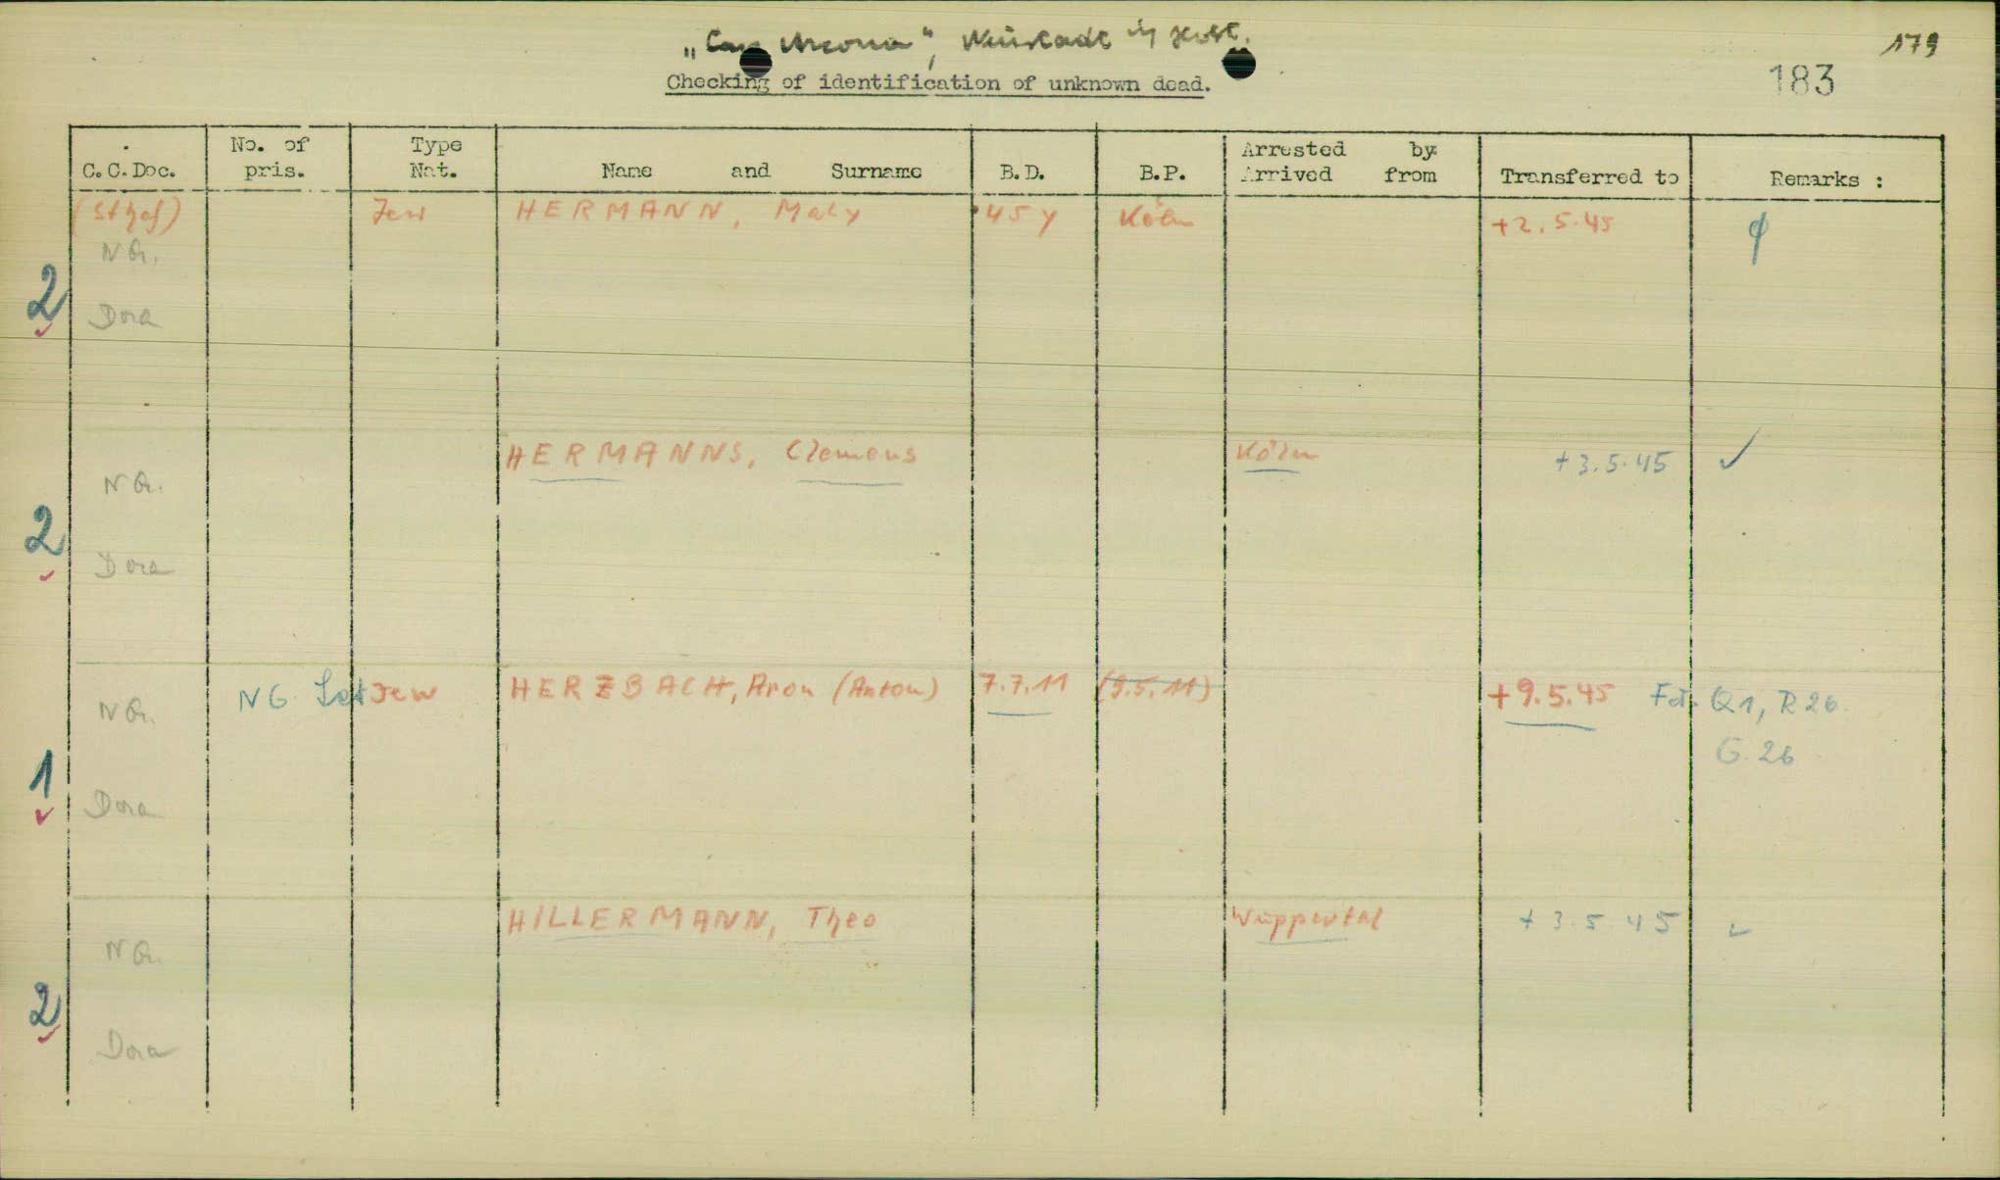 „Cap Arcona", Neustadt in Holst.
179
Checking of identification of unknown dead.
183
C.C.Doc. No. of pris. Type Nat. Name and Surname B.D. B.P. Arrested by Arrived from Transferred to Remarks :
(Sthof) Jew HERMANN, Maly 45 y Köln +2.5.45
NG.
2
Dora
HERMANNS, Clemens Köln +3.5.45 ✓
NG.
2
Dora
NG. NG Jew HERZBACH, Aron (Anton) 7.7.11 (9.5.11) +9.5.45 Q1, R26
G.26
1
Dora
HILLERMANN, Theo Wuppertal +3.5.45 ✓
NG.
2
Dora